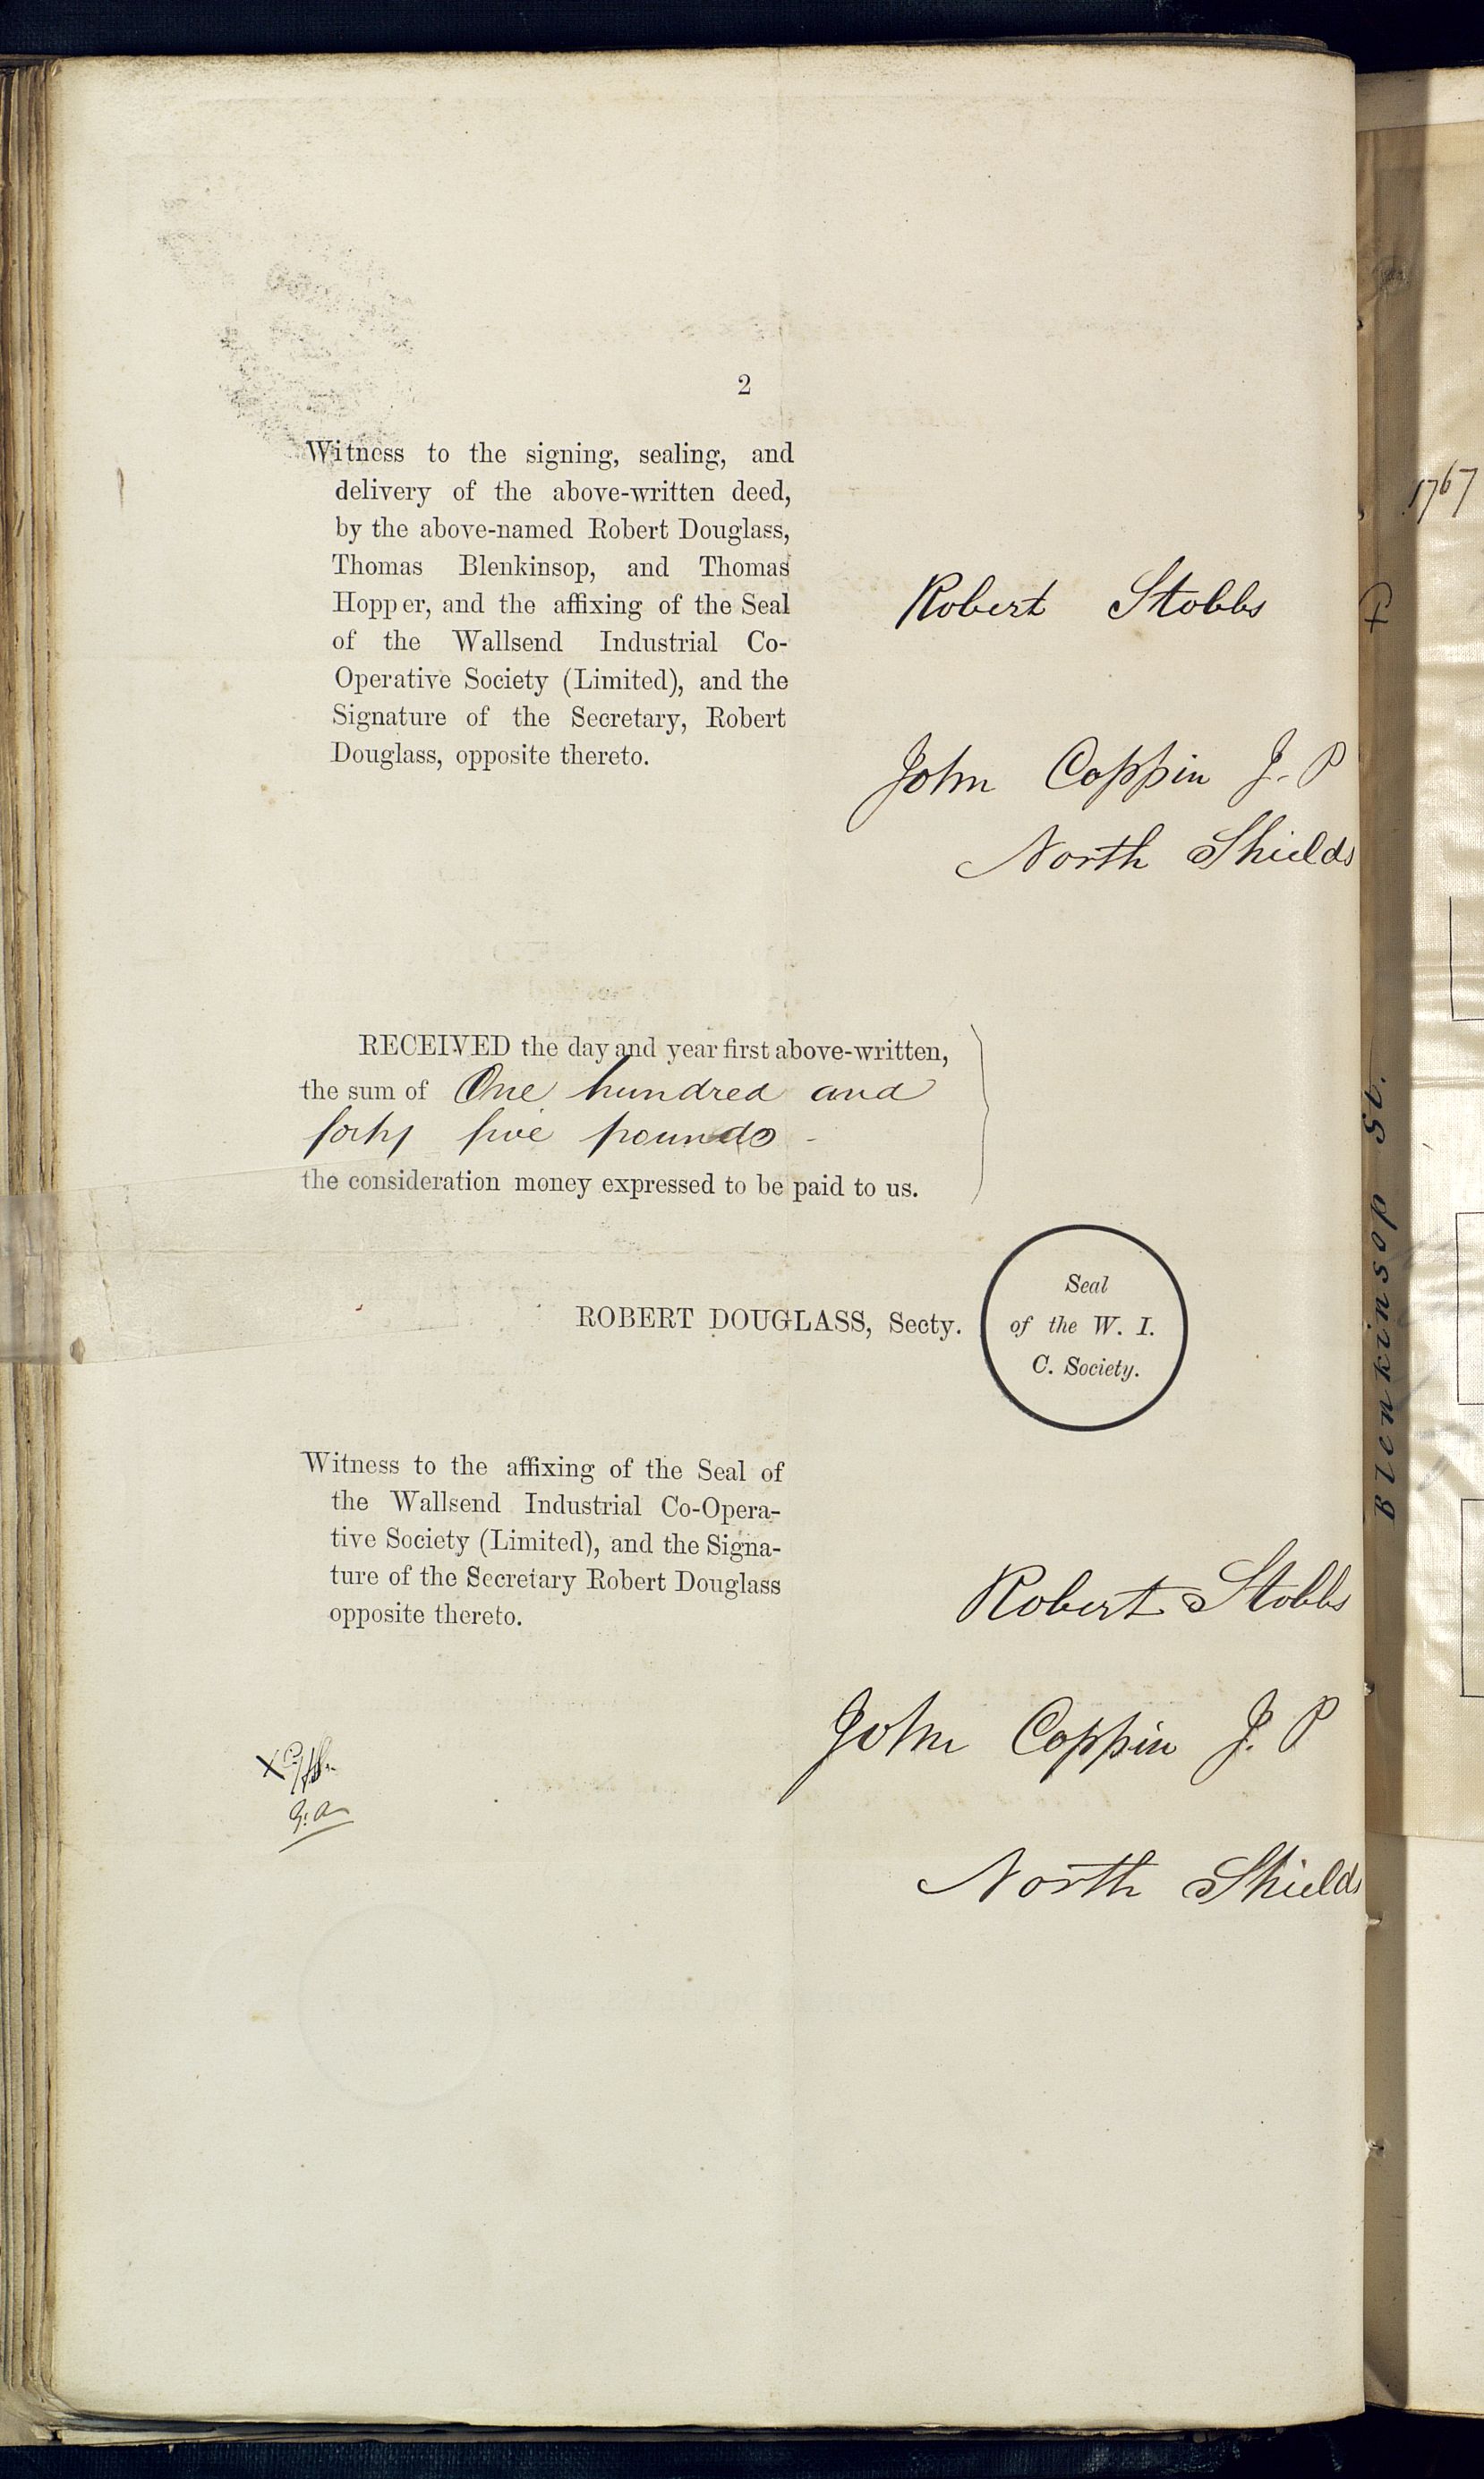 2
Witness to the signing, sealing, and
delivery of the above-written deed,
by the above-named Robert Douglass,
Thomas Blenkinsop, and Thomas
Hopper, and the affixing of the Seal
of the Wallsend Industrial Co-
Operative Society (Limited), and the
Signature of the Secretary, Robert
Douglass, opposite thereto.
Robert Stobbs
John Coppin J. P
North Shields
RECEIVED the day and year first above-written,
the sum of One hundred and
forty five pounds -
the consideration money expressed to be paid to us.
ROBERT DOUGLASS, Secty.
Seal
of the W. I.
C. Society.
Witness to the affixing of the Seal of
the Wallsend Industrial Co-Opera-
tive Society (Limited), and the Signa-
ture of the Secretary Robert Douglass
opposite thereto.
Robert Stobbs
John Coppin J. P
North Shields
1767
Blenkinsop St.